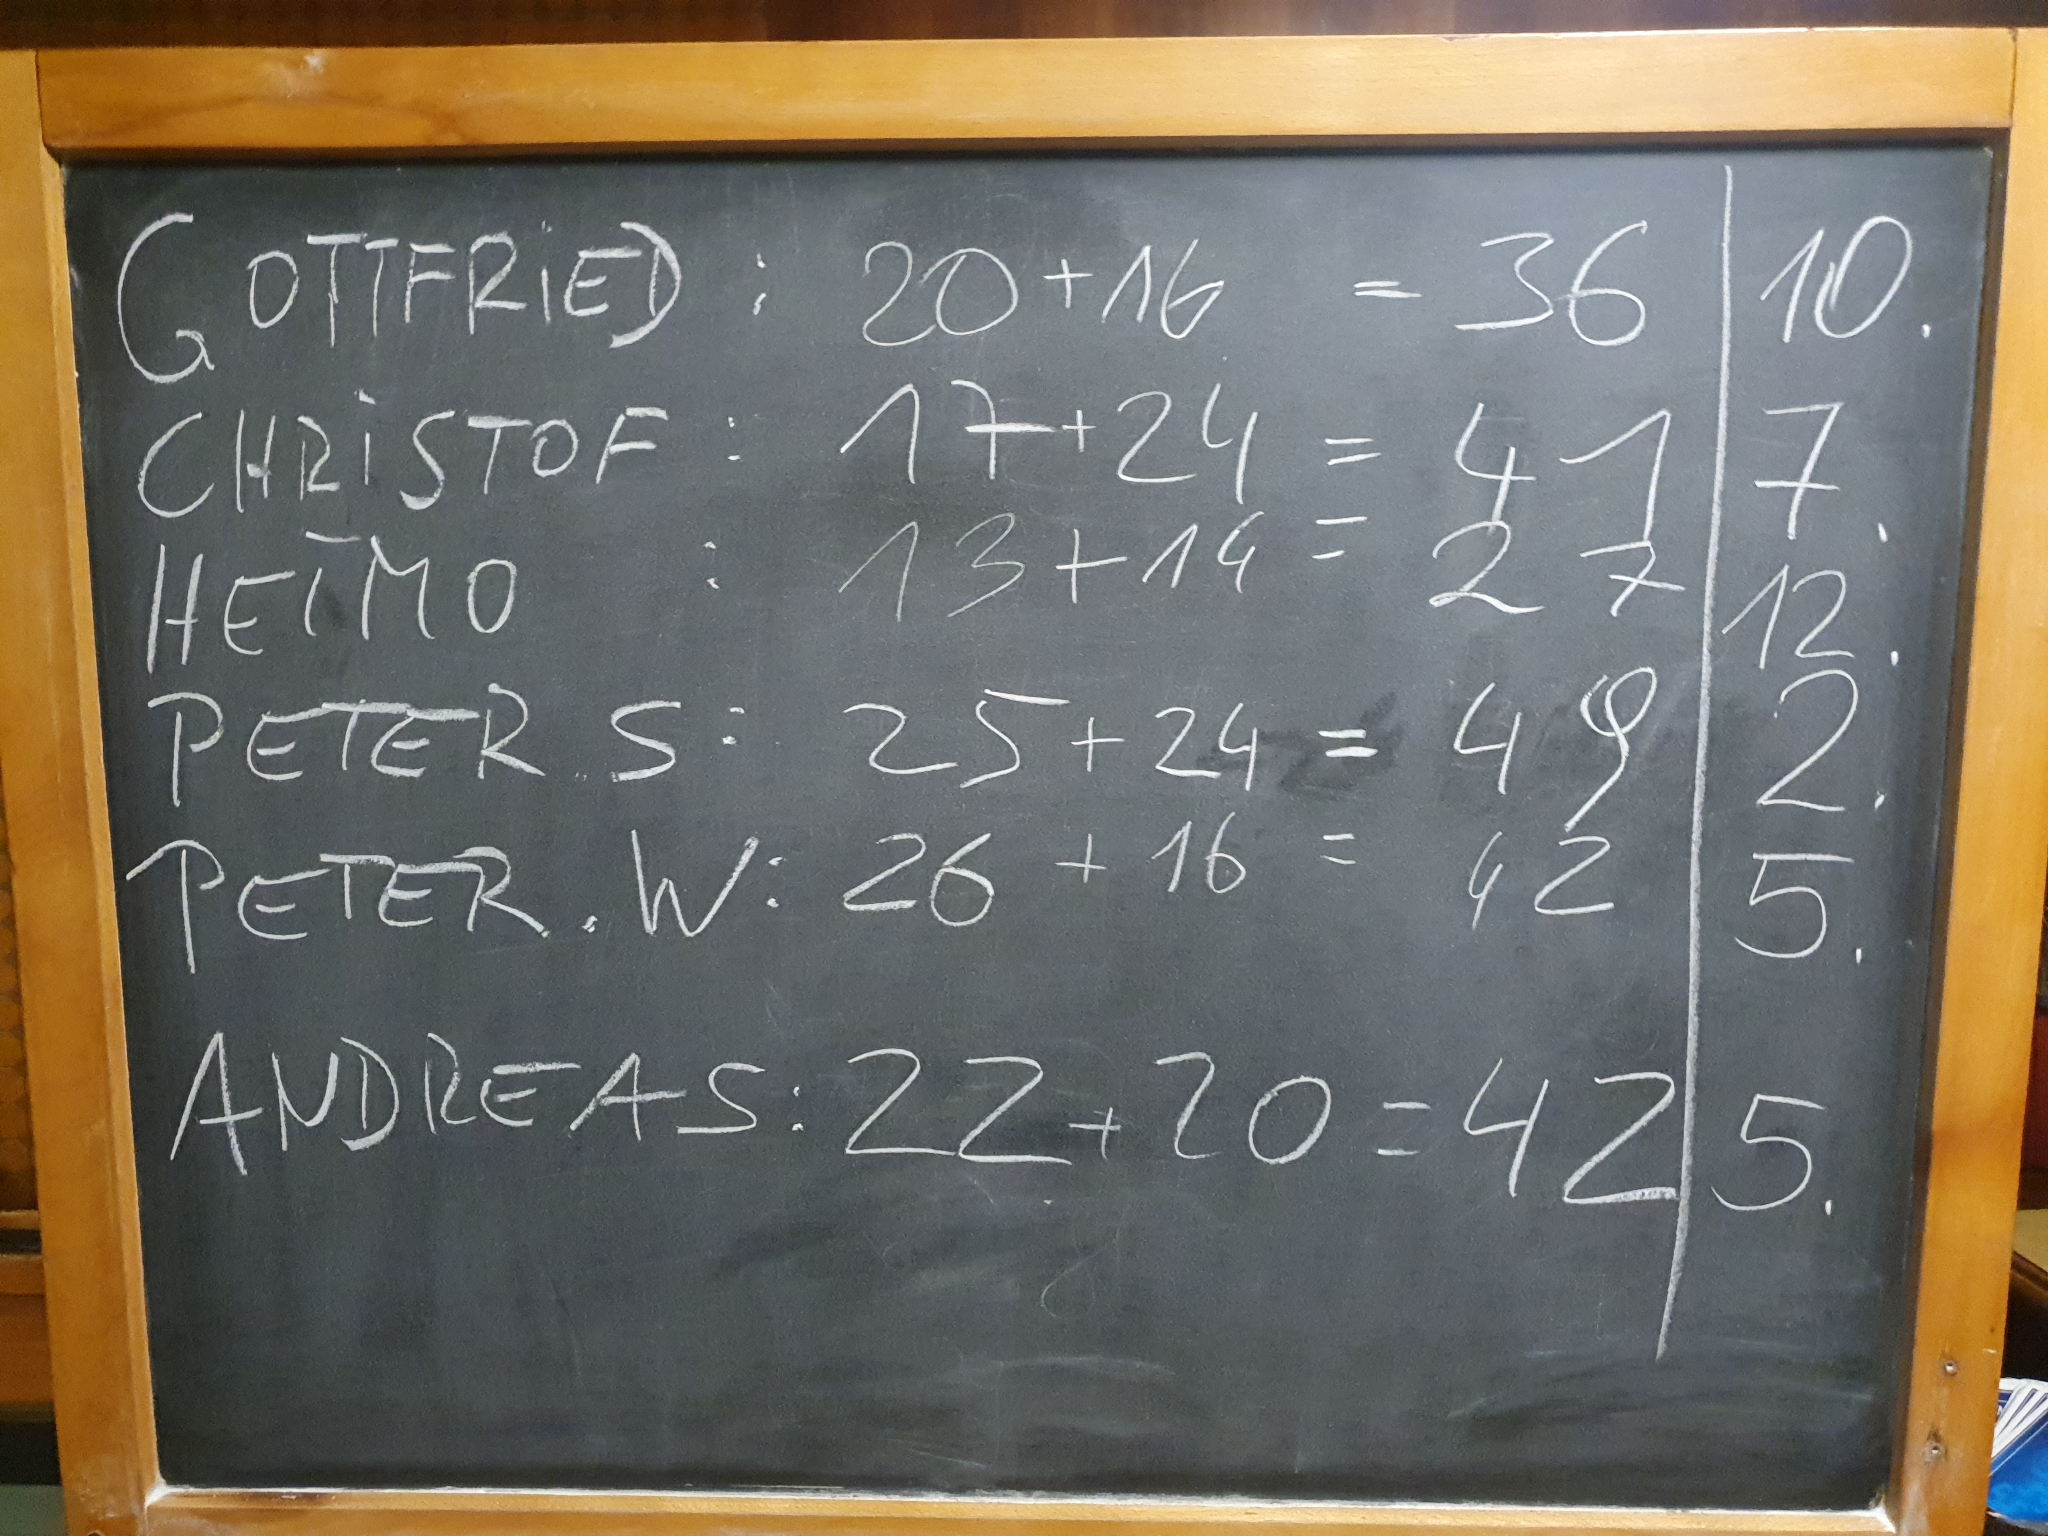 GOTTFRiED : 20 + 16 = 36 10.
CHRiSTOF : 17 + 24 = 41 7.
HEiMO : 13 + 14 = 27 12.
PETER S : 25 + 24 = 49 2.
PETER . W : 26 + 16 = 42 5.
ANDREAS : 22 + 20 = 42 5.